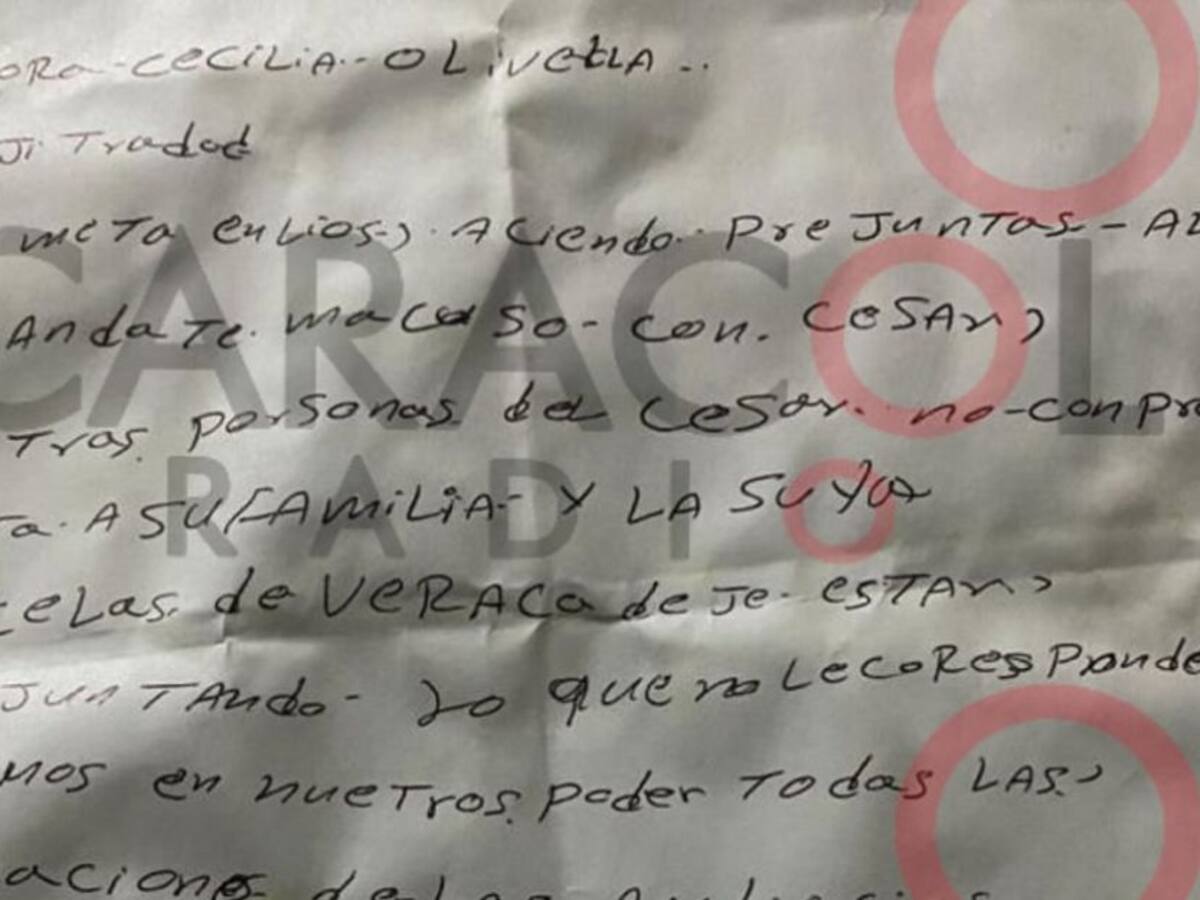 ORA-CECILIA-OLIVELLA..
JiTradad
meTA enLios, ACiendo PreJunTAS-AL
AndaTe. macaso-con. CeSAr,
Tras. personas del CeSar. no-conpro
Ta. A SU FAMILIA- Y LA SUya
CARACOL
RADIO
eLas. de VERACA deJe- esTAr,
JunTAndo- Lo que no Le CORespönde
mos en nueTros. poder TodAs LAS,
aciones de Las